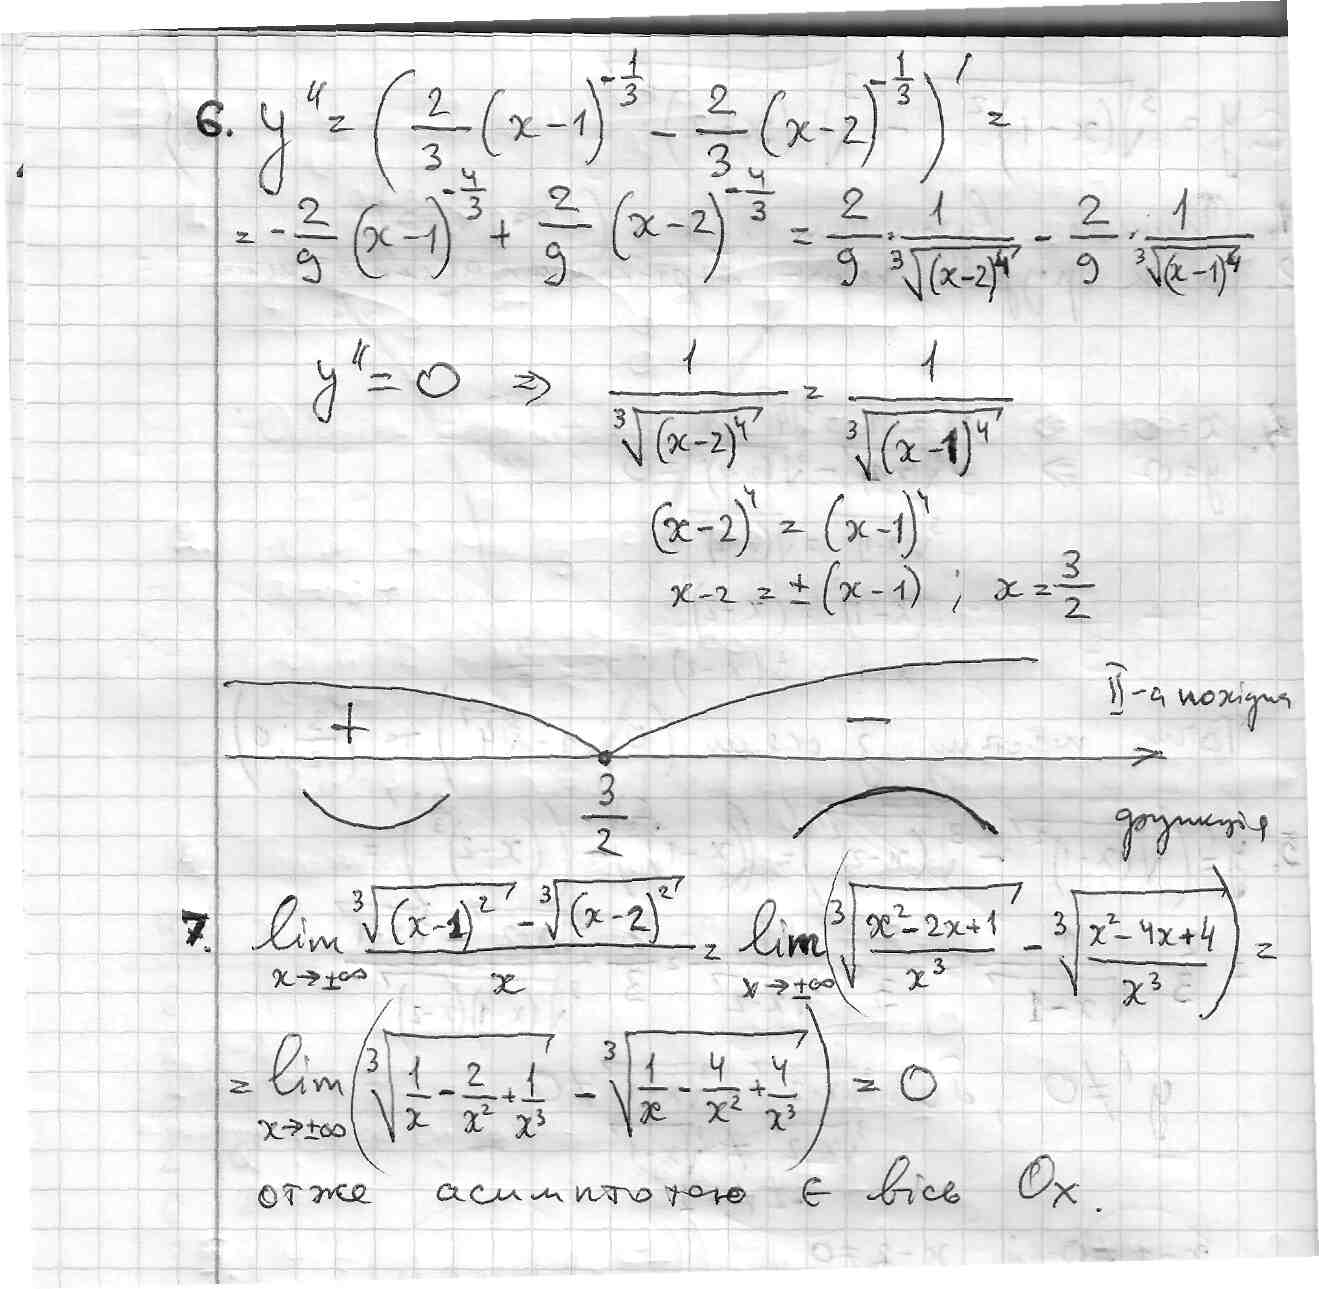 6. y'' = (2/3 (x-1)^{-1/3} - 2/3 (x-2)^{-1/3})' =
= -2/9 (x-1)^{-4/3} + 2/9 (x-2)^{-4/3} = 2/9 · 1/∛((x-2)^4) - 2/9 · 1/∛((x-1)^4)
y'' = 0 ⇒ 1/∛((x-2)^4) = 1/∛((x-1)^4)
(x-2)^4 = (x-1)^4
x-2 = ±(x-1) ; x = 3/2
II-а похідна
+ −
3/2
функція
7. lim_{x→±∞} (∛((x-1)^2) - ∛((x-2)^2))/x = lim_{x→±∞} (∛((x^2-2x+1)/x^3) - ∛((x^2-4x+4)/x^3)) =
= lim_{x→±∞} (∛(1/x - 2/x^2 + 1/x^3) - ∛(1/x - 4/x^2 + 4/x^3)) = 0
отже асимптотою є вісь Ox.